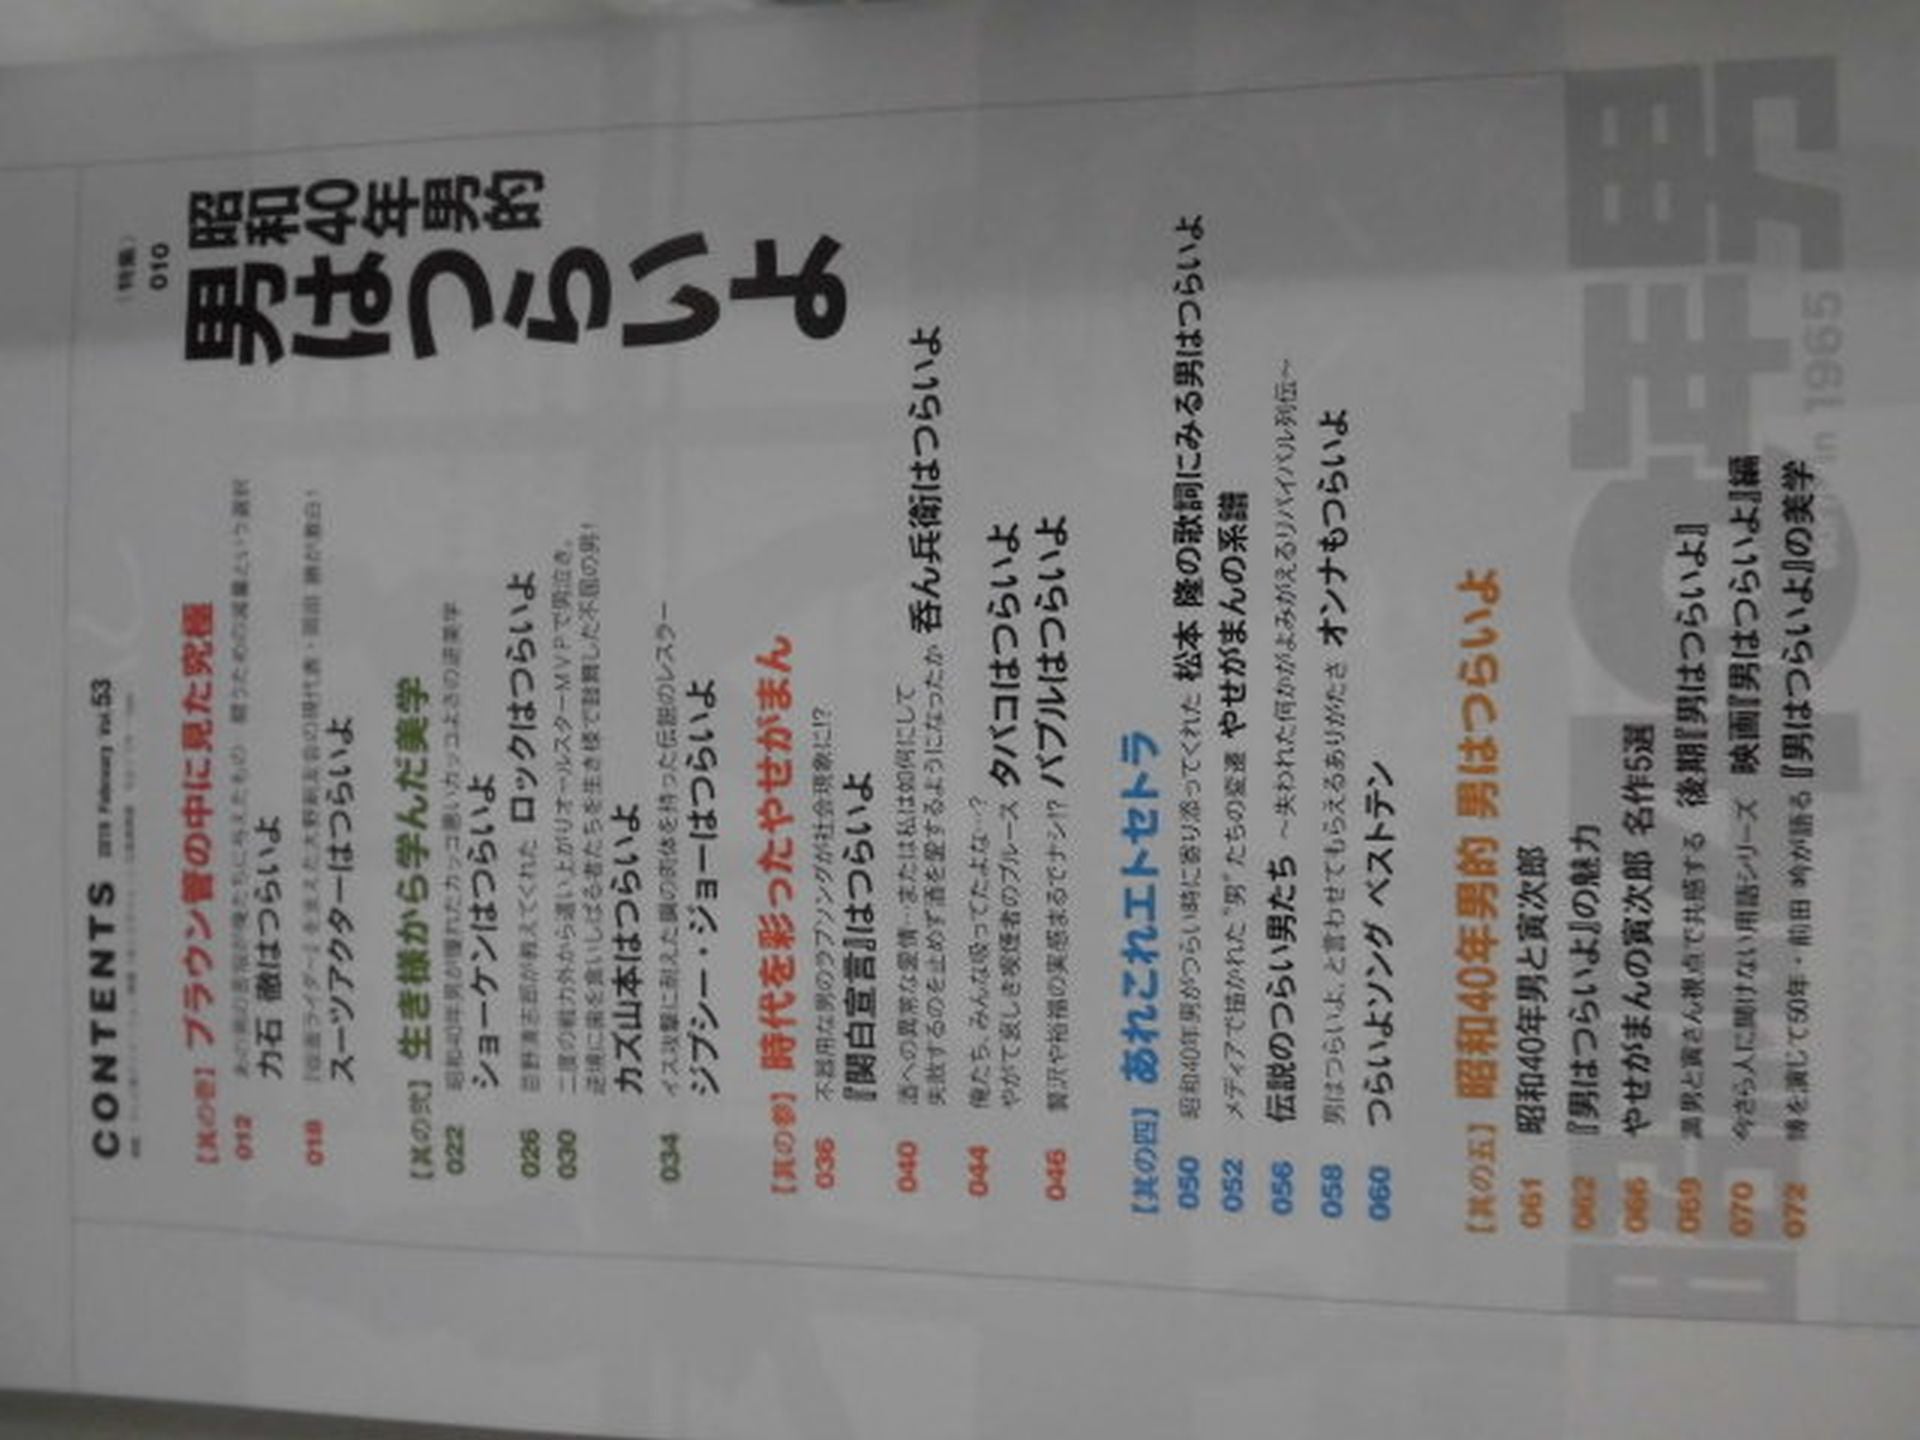 CONTENTS 2019 February Vol.53
〈特集〉
010
昭和40年男的
男はつらいよ
【其の壱】ブラウン管の中に見た究極
012
力石 徹はつらいよ
018
スーツアクターはつらいよ
【其の弐】生き様から学んだ美学
022 昭和40年男が憧れたカッコ悪いカッコよさの逆美学
ショーケンはつらいよ
026 忌野清志郎が教えてくれた ロックはつらいよ
030 二度の戦力外から這い上がりオールスターMVPで男泣き。
逆境に歯を食いしばる者たちを生き様で鼓舞した不屈の男!
カズ山本はつらいよ
034 イス攻撃に耐えた鋼の肉体を持った伝説のレスラー
ジプシー・ジョーはつらいよ
【其の参】時代を彩ったやせがまん
036 不器用な男のラブソングが社会現象に!?
『関白宣言』はつらいよ
040 酒への異常な愛情…または私は如何にして
失敗するのを止めず酒を愛するようになったか 呑ん兵衛はつらいよ
044 俺たち、みんな吸ってたよな…?
やがて哀しき喫煙者のブルース タバコはつらいよ
046 贅沢や裕福の実感まるでナシ!? バブルはつらいよ
【其の四】あれこれエトセトラ
050 昭和40年男がつらい時に寄り添ってくれた 松本 隆の歌詞にみる男はつらいよ
052 メディアで描かれた“男”たちの変遷 やせがまんの系譜
056 伝説のつらい男たち ～失われた何かがよみがえるリバイバル列伝～
058 男はつらいよ、と言わせてもらえるありがたさ オンナもつらいよ
060 つらいよソング ベストテン
【其の五】昭和40年男的 男はつらいよ
061 昭和40年男と寅次郎
062 『男はつらいよ』の魅力
066 やせがまんの寅次郎 名作5選
069 満男と寅さん視点で共感する 後期『男はつらいよ』
070 今さら人に聞けない用語シリーズ 映画『男はつらいよ』編
072 博を演じて50年・前田 吟が語る『男はつらいよ』の美学
in 1965